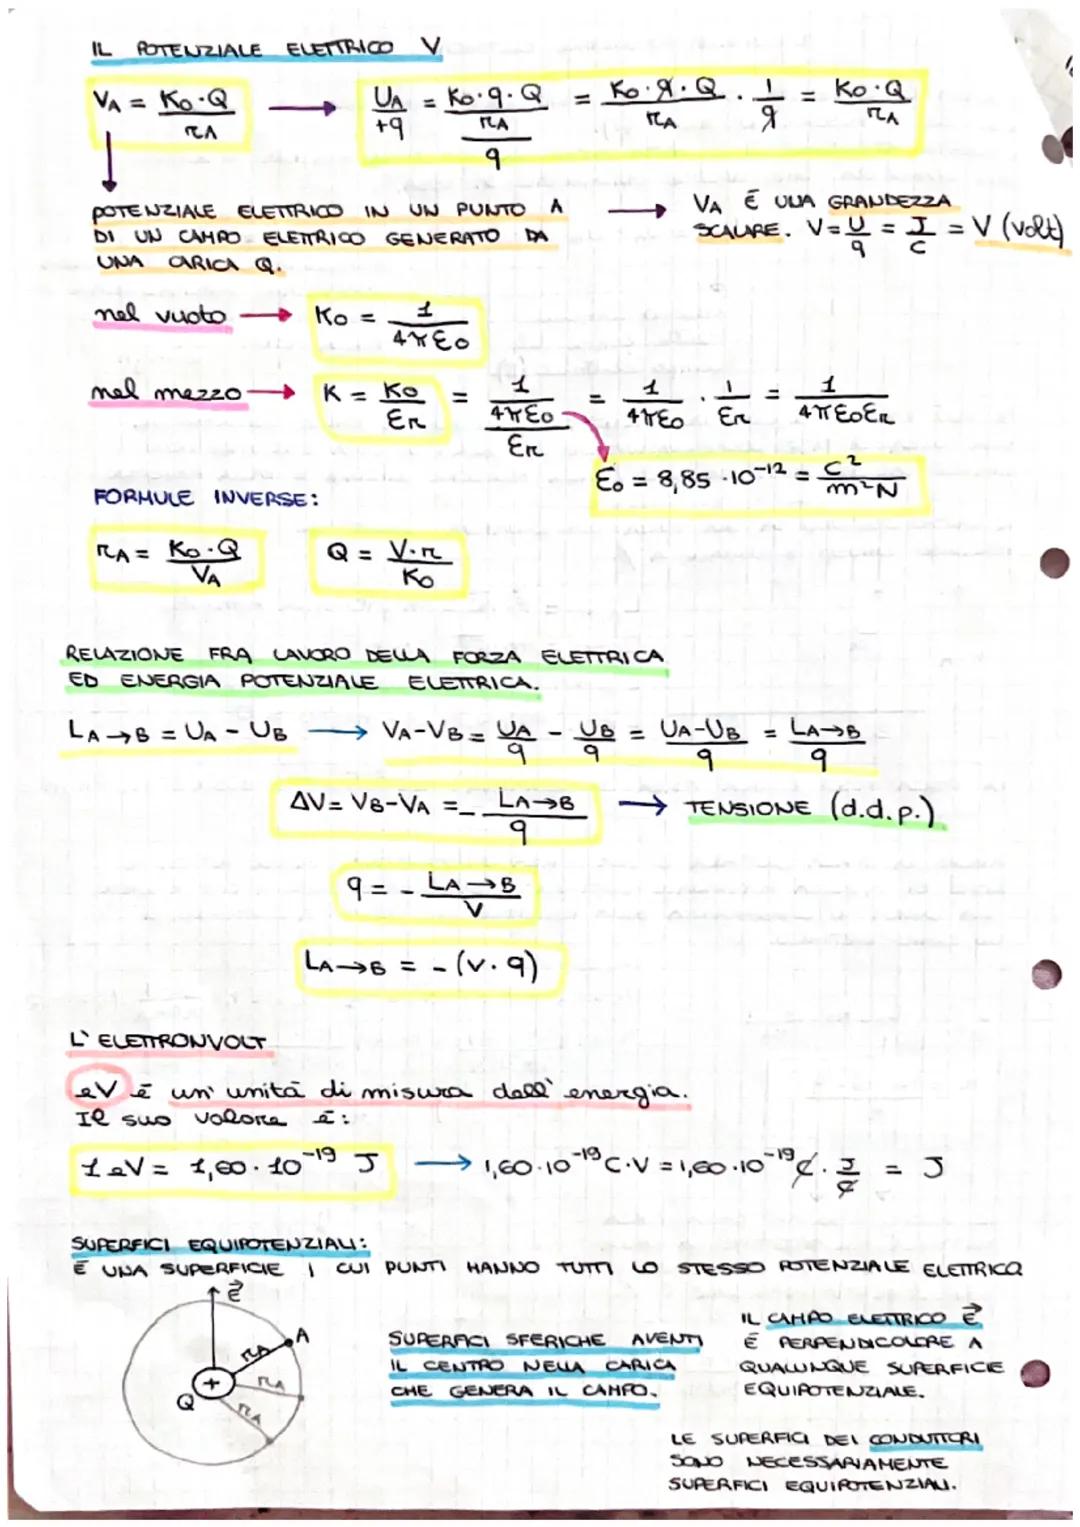 IL POTENZIALE ELETTRICO V
VA = Ko·Q / rA → UA / +q = Ko·q·Q / rA / q = Ko·q·Q / rA · 1 / q = Ko·Q / rA
POTENZIALE ELETTRICO IN UN PUNTO A
DI UN CAMPO ELETTRICO GENERATO DA
UNA CARICA Q.
→ VA È UNA GRANDEZZA
SCALARE. V = U / q = J / C = V (volt)
nel vuoto → Ko = 1 / 4πεo
nel mezzo → K = Ko / εr = 1 / 4πεo / εr = 1 / 4πεo · 1 / εr = 1 / 4πεoεr
εo = 8,85 · 10⁻¹² = C² / m²N
FORMULE INVERSE:
rA = Ko·Q / VA
Q = V·r / Ko
RELAZIONE FRA LAVORO DELLA FORZA ELETTRICA
ED ENERGIA POTENZIALE ELETTRICA.
LA→B = UA - UB → VA-VB = UA / q - UB / q = UA-UB / q = LA→B / q
ΔV = VB-VA = - LA→B / q → TENSIONE (d.d.p.)
q = - LA→B / V
LA→B = - (V·q)
L' ELETTRONVOLT
eV è un' unità di misura dell' energia.
Il suo valore è:
1 eV = 1,60 · 10⁻¹⁹ J → 1,60·10⁻¹⁹ C·V = 1,60·10⁻¹⁹ C · J / C = J
SUPERFICI EQUIPOTENZIALI:
È UNA SUPERFICIE I CUI PUNTI HANNO TUTTI LO STESSO POTENZIALE ELETTRICO
E⃗
A
rA
rA
rA
+
Q
SUPERFICI SFERICHE AVENTI
IL CENTRO NELLA CARICA
CHE GENERA IL CAMPO.
IL CAMPO ELETTRICO E⃗
È PERPENDICOLORE A
QUALUNQUE SUPERFICIE
EQUIPOTENZIALE.
LE SUPERFICI DEI CONDUTTORI
SONO NECESSARIAMENTE
SUPERFICI EQUIPOTENZIALI.